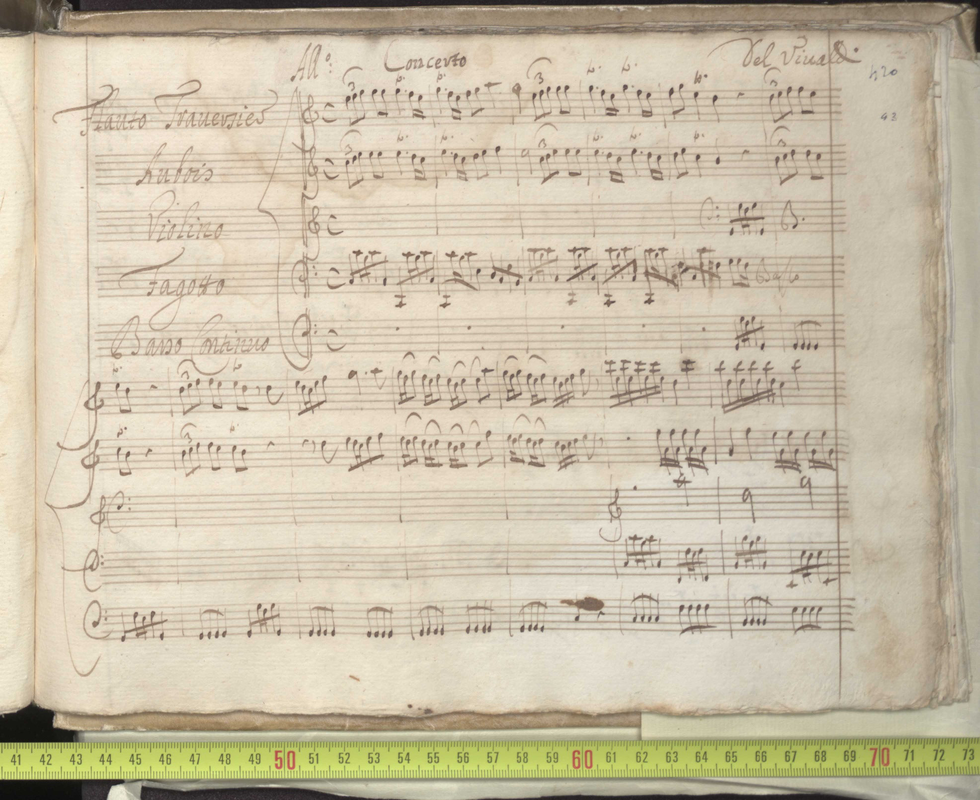 All°: Concerto Del Vivald.
420
43
Flauto Traversier
Aubois
Violino
Fagotto
Basso Continuo
41 42 43 44 45 46 47 48 49 50 51 52 53 54 55 56 57 58 59 60 61 62 63 64 65 66 67 68 69 70 71 72 73